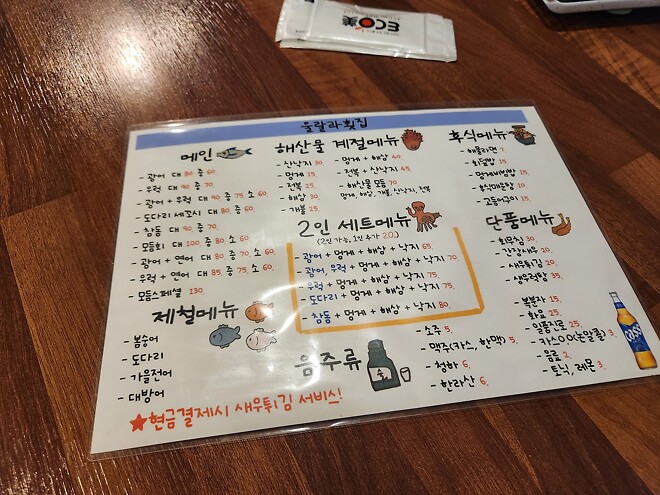 ECO美
울랄라횟집
메인
- 광어 대 80. 중 60.
- 우럭 대 90. 중 70.
- 광어 + 우럭 대 90 중 75 소 60.
- 도다리 세꼬시 대 80. 중 60.
- 참돔 대 90. 중 70.
- 모듬회 대 100 중 80 소 60.
- 광어 + 연어 대 80. 중 70 소 60.
- 우럭 + 연어 대 85, 중 75, 소 60.
- 모듬스페셜 130.
제철메뉴
- 봄숭어
- 도다리
- 가을전어
- 대방어
★현금결제시 새우튀김 서비스!
해산물 계절메뉴
- 산낙지 30.
- 멍게 15.
- 전복 25.
- 해삼 30.
- 개불 25.
- 멍게 + 해삼 40.
- 전복 + 산낙지 45.
- 해산물 모듬 70.
멍게, 해삼, 개불, 산낙지, 전복
2인 세트메뉴
(2인 가능, 1인 추가 20.)
- 광어 + 멍게 + 해삼 + 낙지 65.
- 광어, 우럭 + 멍게 + 해삼 + 낙지 70.
- 우럭 + 멍게 + 해삼 + 낙지 75.
- 도다리 + 멍게 + 해삼 + 낙지 75.
- 참돔 + 멍게 + 해삼 + 낙지 80.
음주류
술
- 소주 5.
- 맥주(카스, 한맥) 5.
- 청하 6.
- 한라산 6.
후식메뉴
- 해물라면 7.
- 회덮밥 15.
- 멍게비빔밥 15.
- 후식매운탕 10.
- 고등어구이 15.
단품메뉴
- 회무침 30.
- 간장새우 20.
- 새우튀김 20.
- 생우럭탕 35.
- 복분자 15.
- 화요 25.
- 일품진로 25.
- 카스0.0(논알콜) 3.
- 음료 2.
- 토닉, 레몬 3.